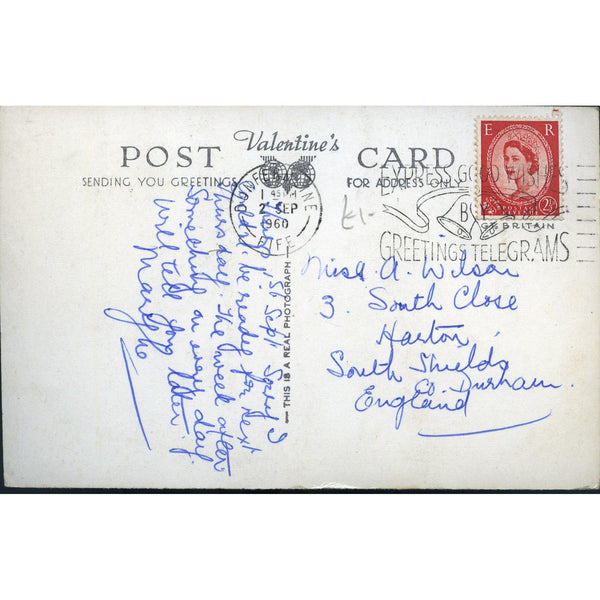 Valentine's
POST CARD
SENDING YOU GREETINGS
FOR ADDRESS ONLY
E R
POSTAGE
2½
DUNFERMLINE
1 45 PM
2 SEP
1960
FIFE
EXPRESS GOOD WISHES
BY
GREETINGS TELEGRAMS
GT. BRITAIN
£1-
THIS IS A REAL PHOTOGRAPH
Sept. Sorry I
couldn't be ready for next
Thursday. The week after
Something on every day.
Will tell you later.
Miss A. Wilson
3. South Close
Harton
South Shields
Co. Durham.
England